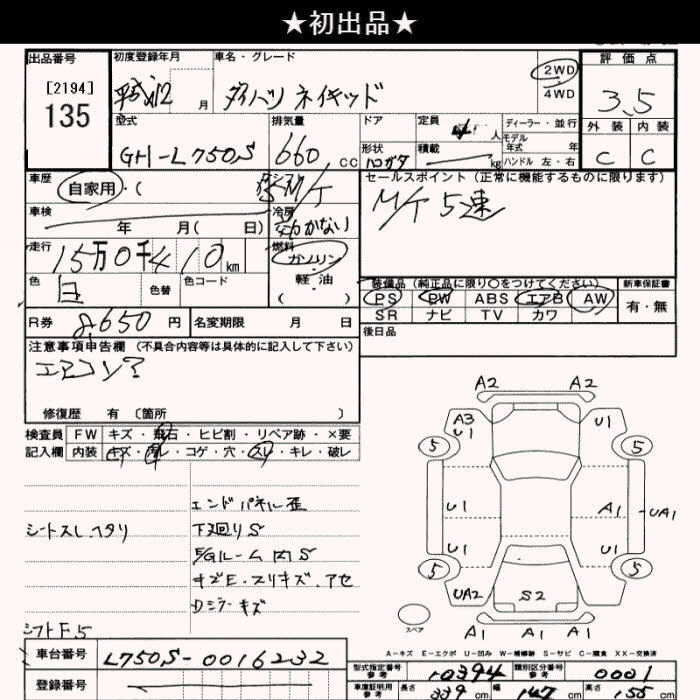 ★初出品★
出品番号 初度登録年月 車名・グレード 2WD 評価点
[2194] 平成12 月 ダイハツ ネイキッド 4WD 3.5
135
型式 排気量 ドア 定員 4 人 ディーラー・並行 外装 内装
GH-L750S 660 cc 形状 ハッチ 積載 kg モデル年式 年 C C
ハンドル 左・右
車歴 自家用・( シフト 5M/T セールスポイント (正常に機能するものに限ります)
車検 年 月( 日) 冷房 M/T 5速
走行 15万0千410 km 燃料 ガソリン
色 白 色替 色コード 軽油 ( ) 装備品 (純正品に限り○をつけてください) 新車保証書
PS PW ABS エアB AW 有・無
R券 8,650 円 名変期限 月 日 SR ナビ TV カワ
注意事項申告欄 (不具合内容等は具体的に記入して下さい) 後日品
修復歴 有 〔箇所 〕
検査員 FW キズ・飛石・ヒビ割・リペア跡・×要
記入欄 内装 キズ・汚レ・コゲ・穴・スレ・キレ・破レ
エンドパネル歪
シートスレ.ヘタリ 下廻りS
E/Gルーム内S
キズE.スリキズ.アセ
Dミラーキズ
シフトF.5
A2 A2
A3 U1 U1
5 5
U1 A1 UA1
U1 U1
5 5
UA2 S2
A1 A1 A1
スペア
A-キズ E-エクボ U-凹み W-補修跡 S-サビ C-腐食 XX-交換済
車台番号 L750S-0016232
登録番号
型式指定番号 参考 10394 類別区分番号 参考 0001
車庫証明用 参考 長さ 339 cm 幅 147 cm 高さ 155 cm